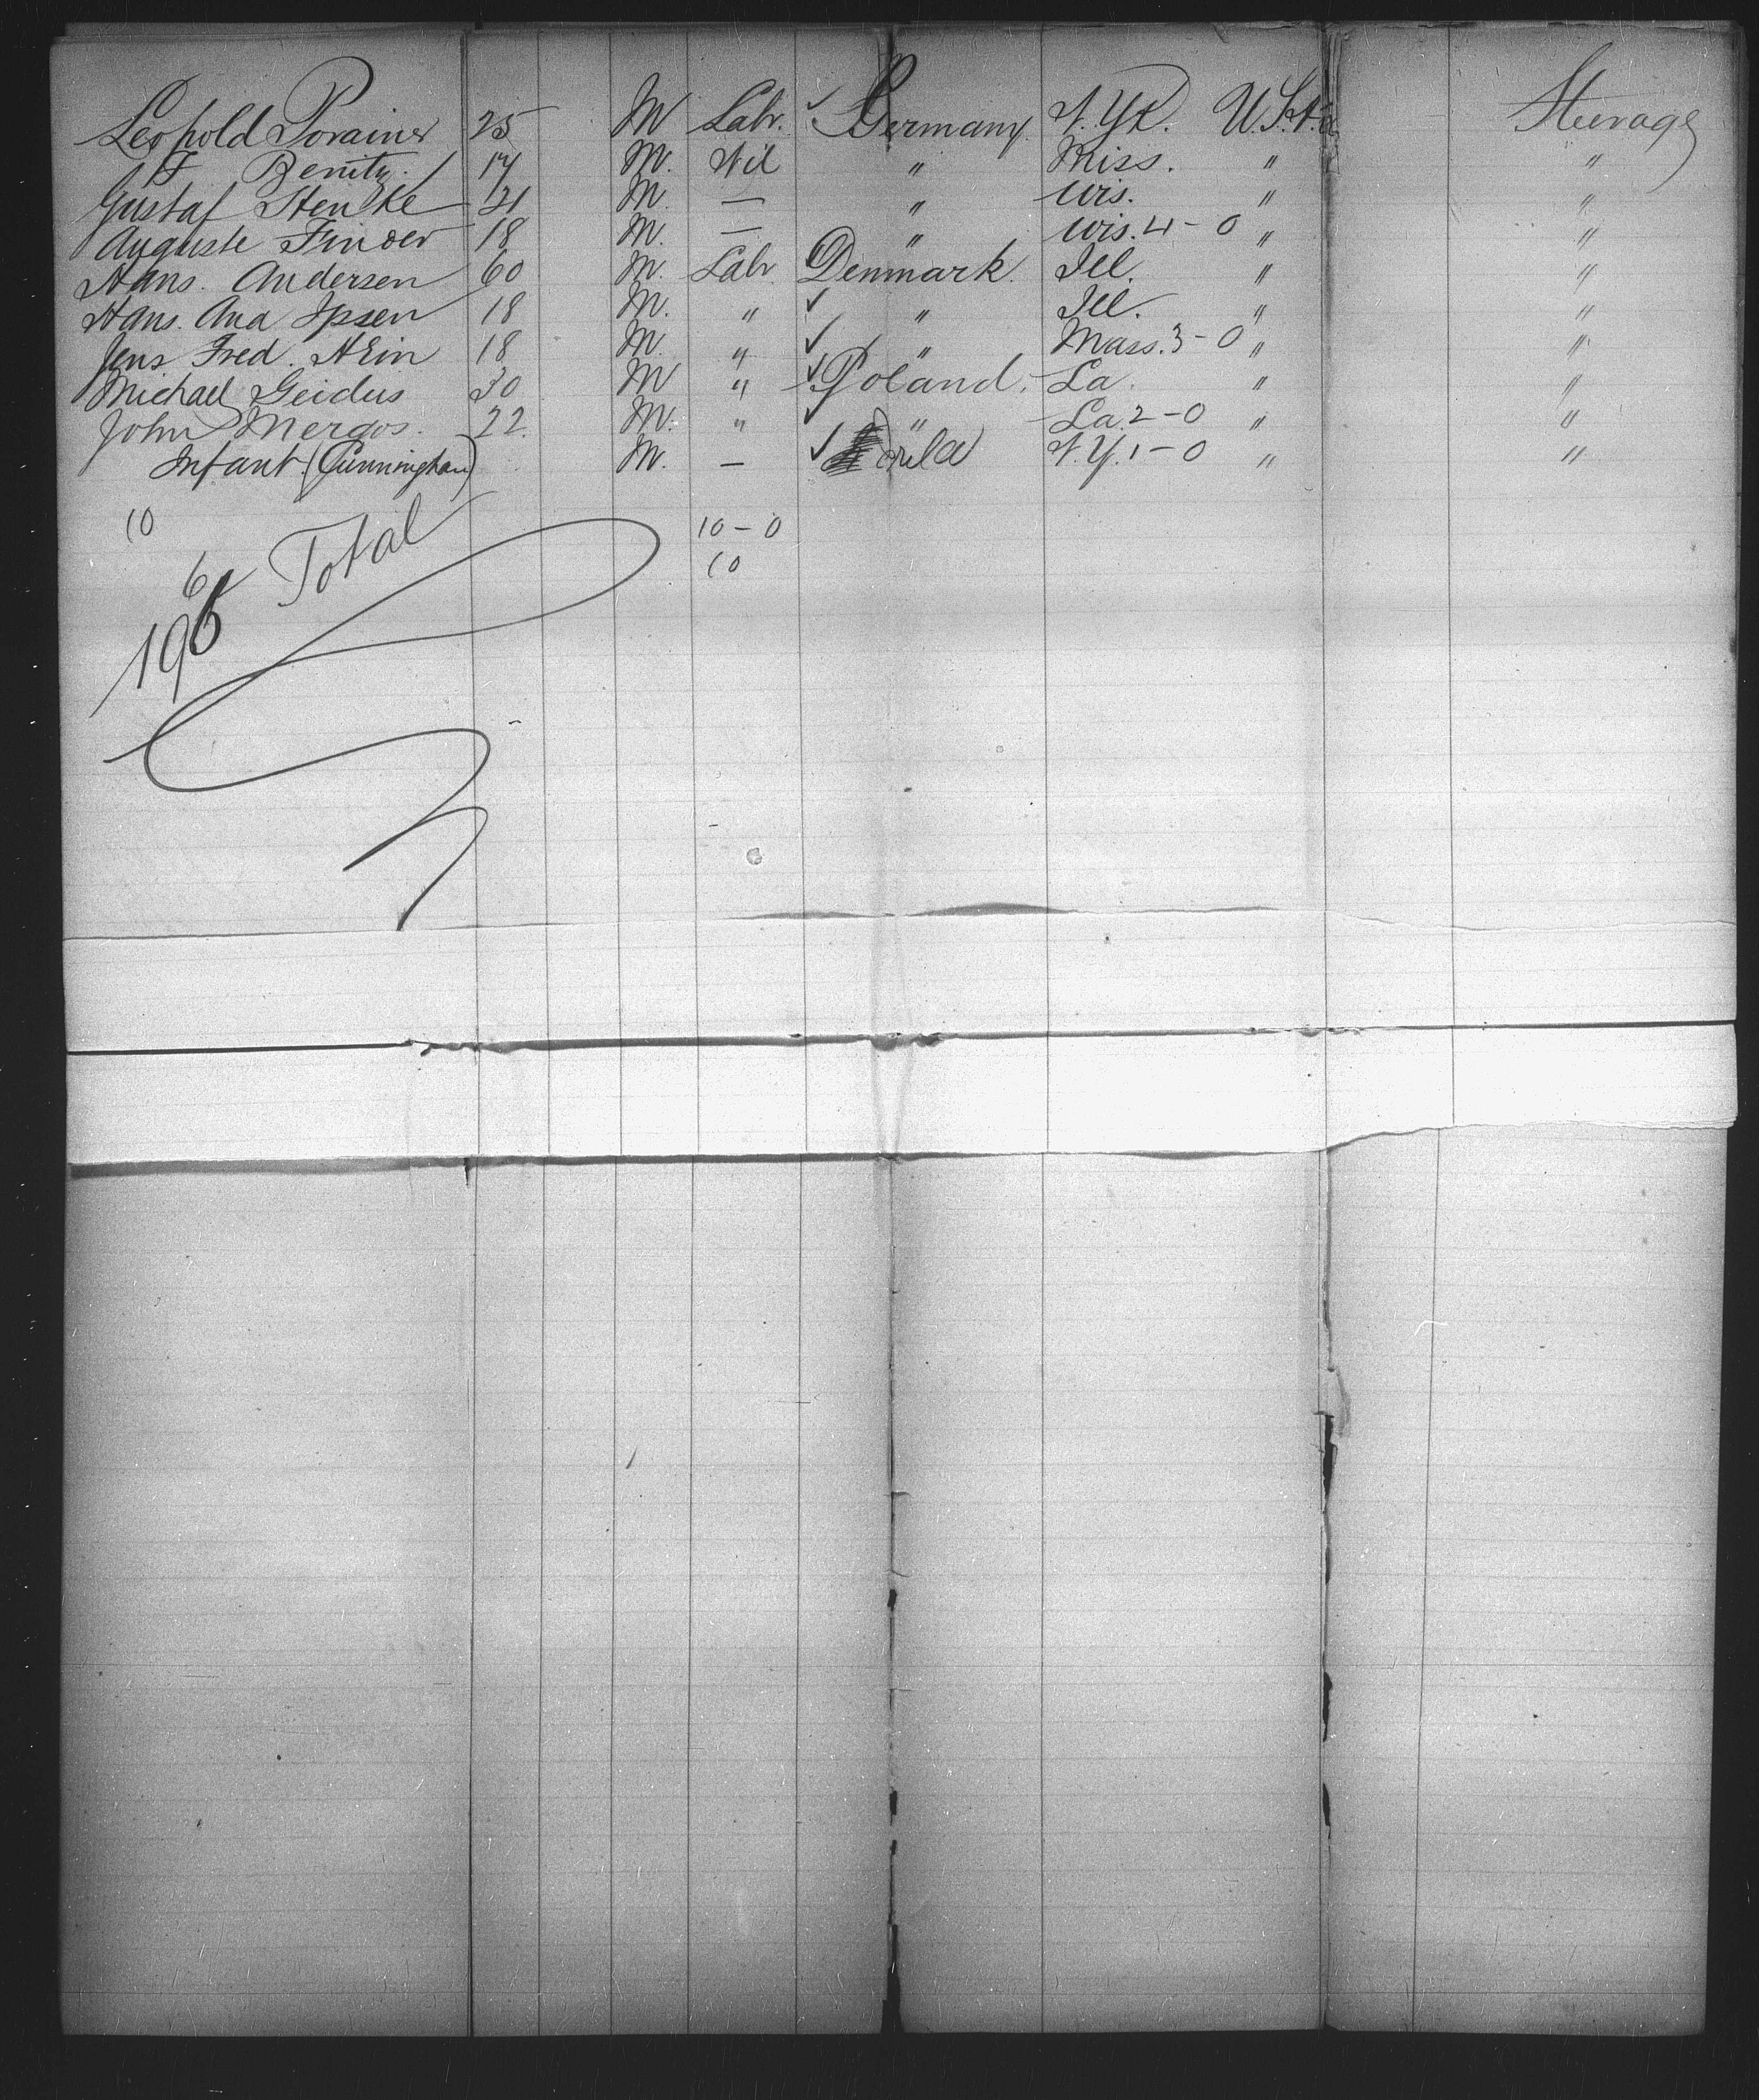 Leopold Porainer 25 M Labr. ✓ Germany N. Yk. U.St.a Steerage
F Benitz 17 M. Nil " Miss. " "
Gustaf Stenke 21 M. — " Wis. " "
Auguste Finder 18 M. — " Wis. 4-0 " "
Hans. Andersen 60 M. Labr Denmark. Ill. " "
Hans. And Ipsen 18 M. " ✓ " Ill. " "
Jens Fred. Hein 18 M. " ✓ " Mass. 3-0 " "
Michael Geidus 30 M " ✓ Poland. La. " "
John Mergos. 22. M. " ✓ " La. 2-0 " "
Infant (Cunningham) M. — ✓ N.Y. 1-0 " "
10 10-0
Total 10
6
196